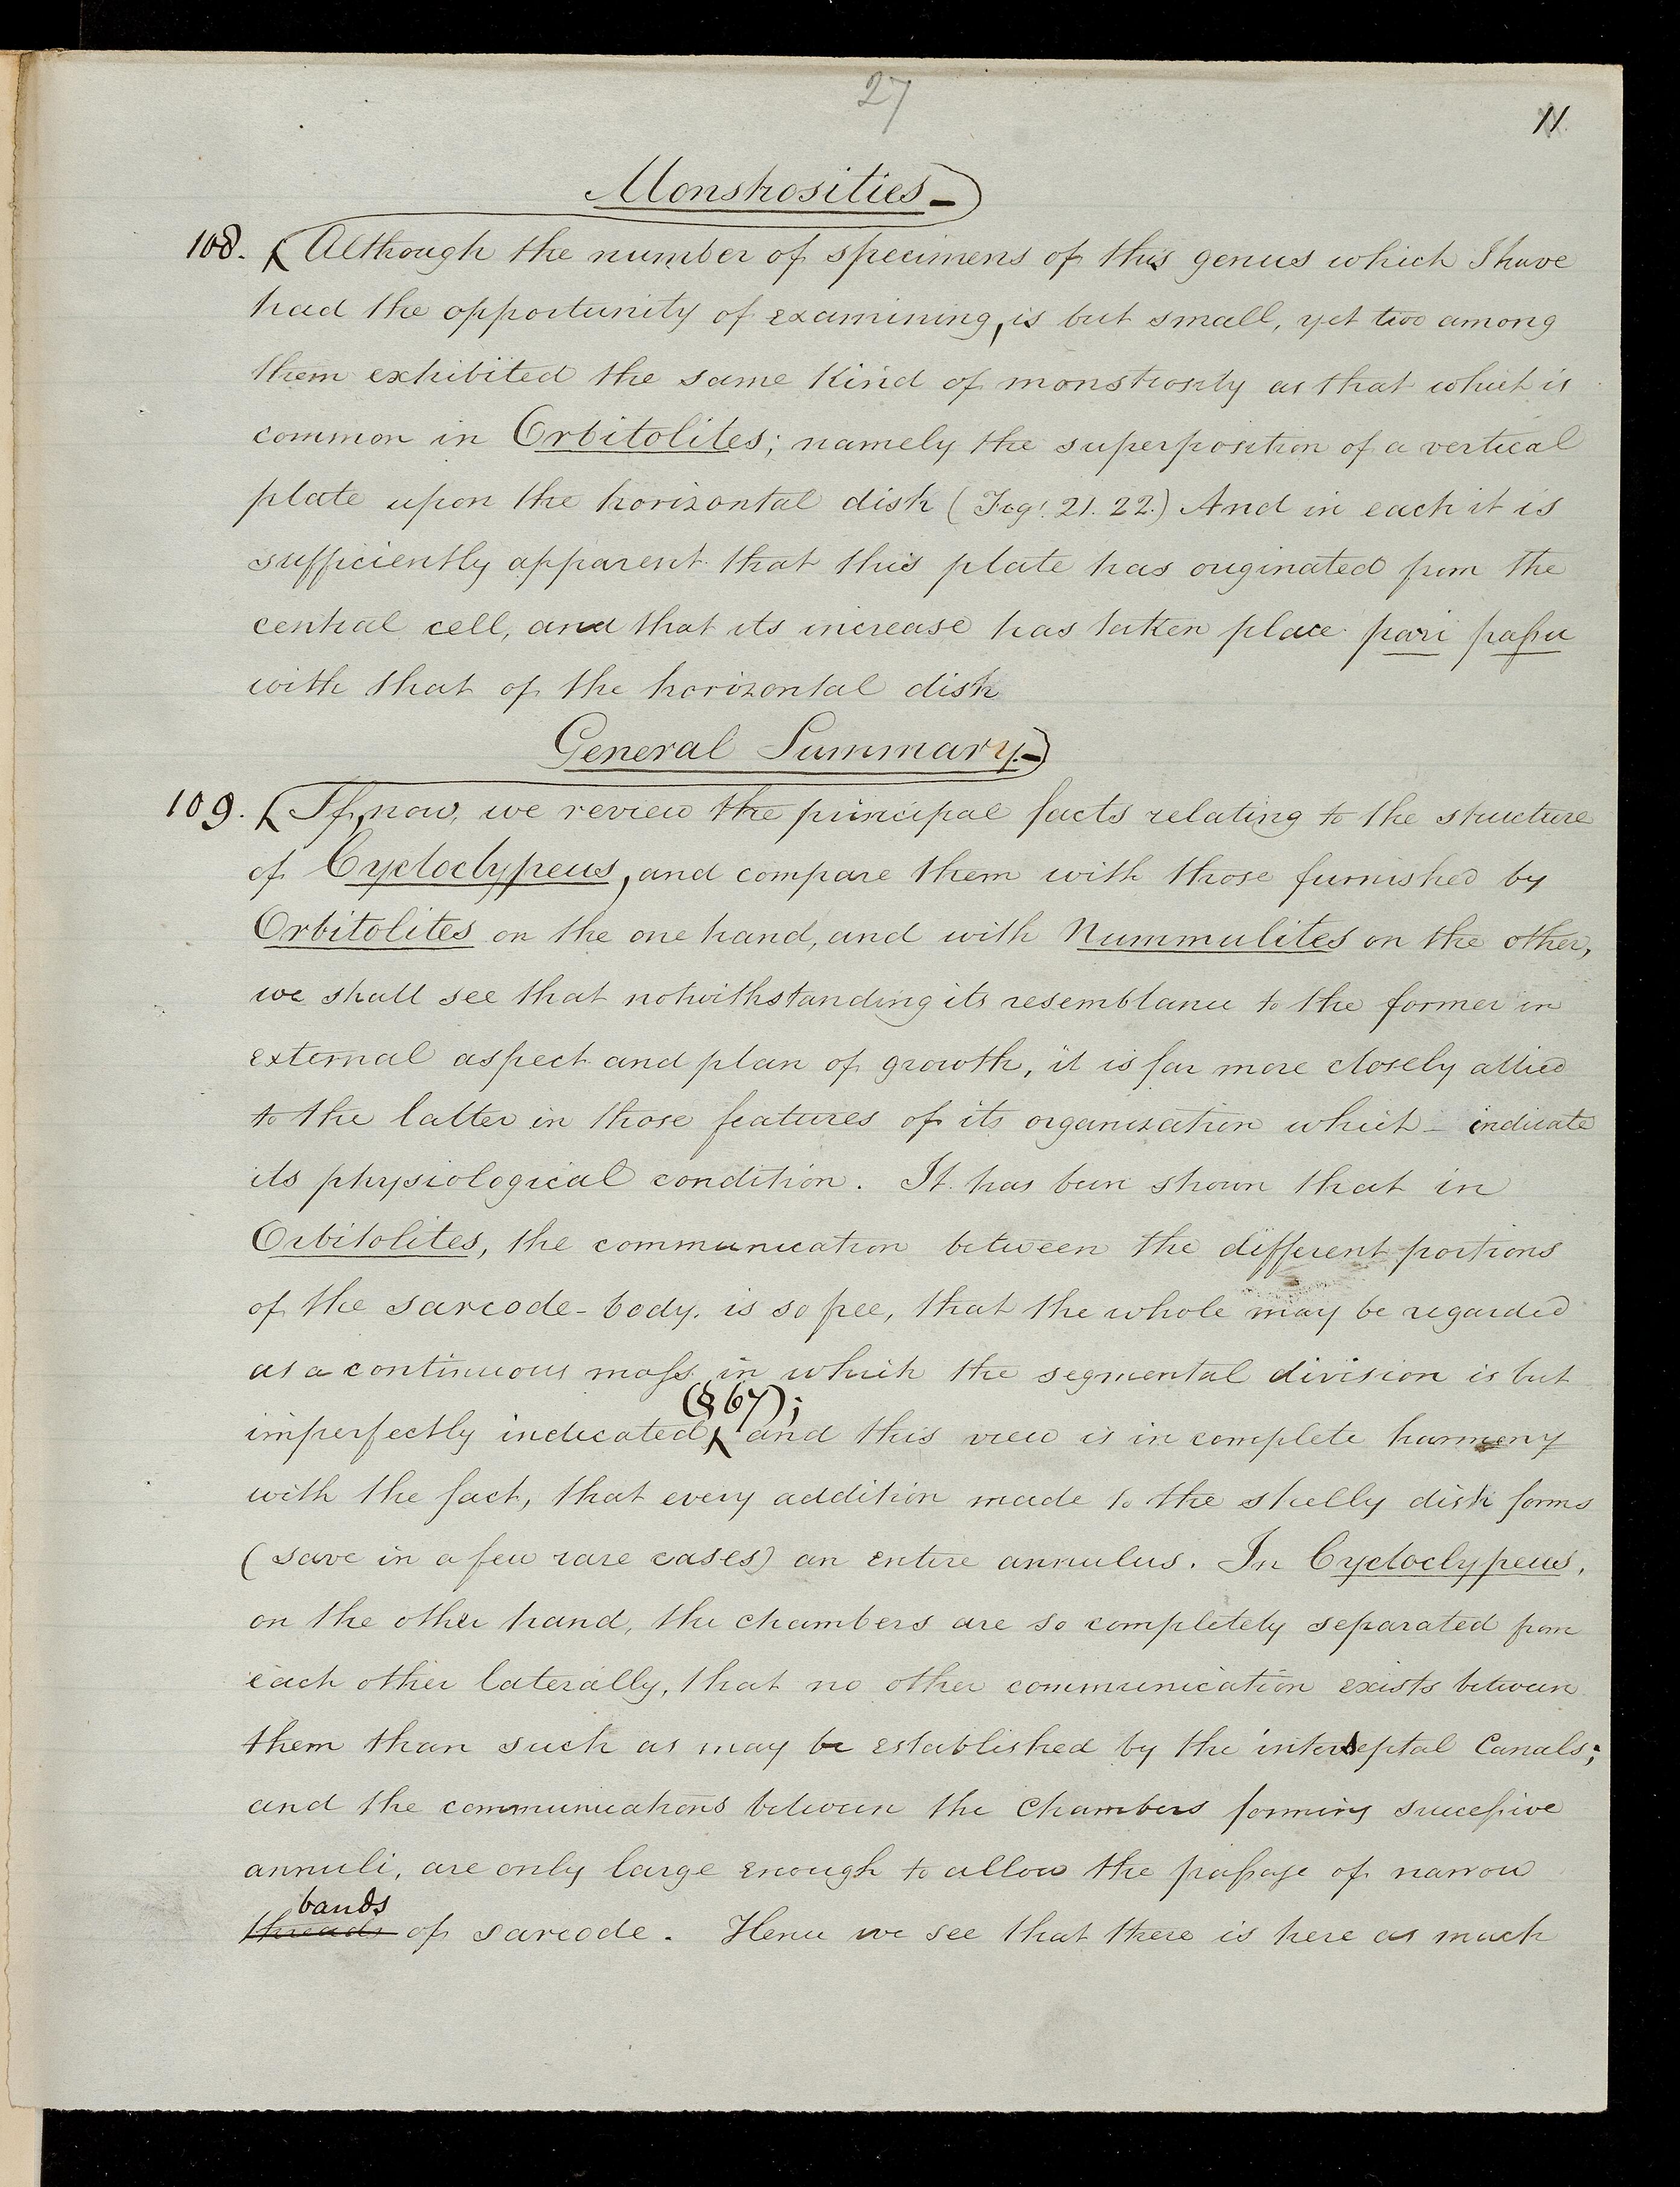 27
11
Monstrosities –
108. Although the number of specimens of this genus which I have
had the opportunity of examining, is but small, yet two among
them exhibited the same kind of monstrosity as that which is
common in Orbitolites; namely the superposition of a vertical
plate upon the horizontal disk (Figs. 21. 22.) And in each it is
sufficiently apparent that this plate has originated from the
central cell, and that its increase has taken place pari passu
with that of the horizontal disk
General Summary. –
109. If, now, we review the principal facts relating to the structure
of Cycloclypeus, and compare them with those furnished by
Orbitolites on the one hand, and with Nummulites on the other,
we shall see that notwithstanding its resemblance to the former in
external aspect and plan of growth, it is far more closely allied
to the latter in those features of its organization which – indicate
its physiological condition. It has been shown that in
Orbitolites, the communication between the different portions
of the sarcode-body, is so free, that the whole may be regarded
as a continuous mass, in which the segmental division is but
(§ 67);
imperfectly indicated, and this view is in complete harmony
with the fact, that every addition made to the shelly disk forms
(save in a few rare cases) an entire annulus. In Cycloclypeus,
on the other hand, the chambers are so completely separated from
each other laterally, that no other communication exists between
them than such as may be established by the interseptal Canals;
and the communications between the Chambers forming successive
annuli, are only large enough to allow the passage of narrow
bands
threads of sarcode. Hence we see that there is here as much